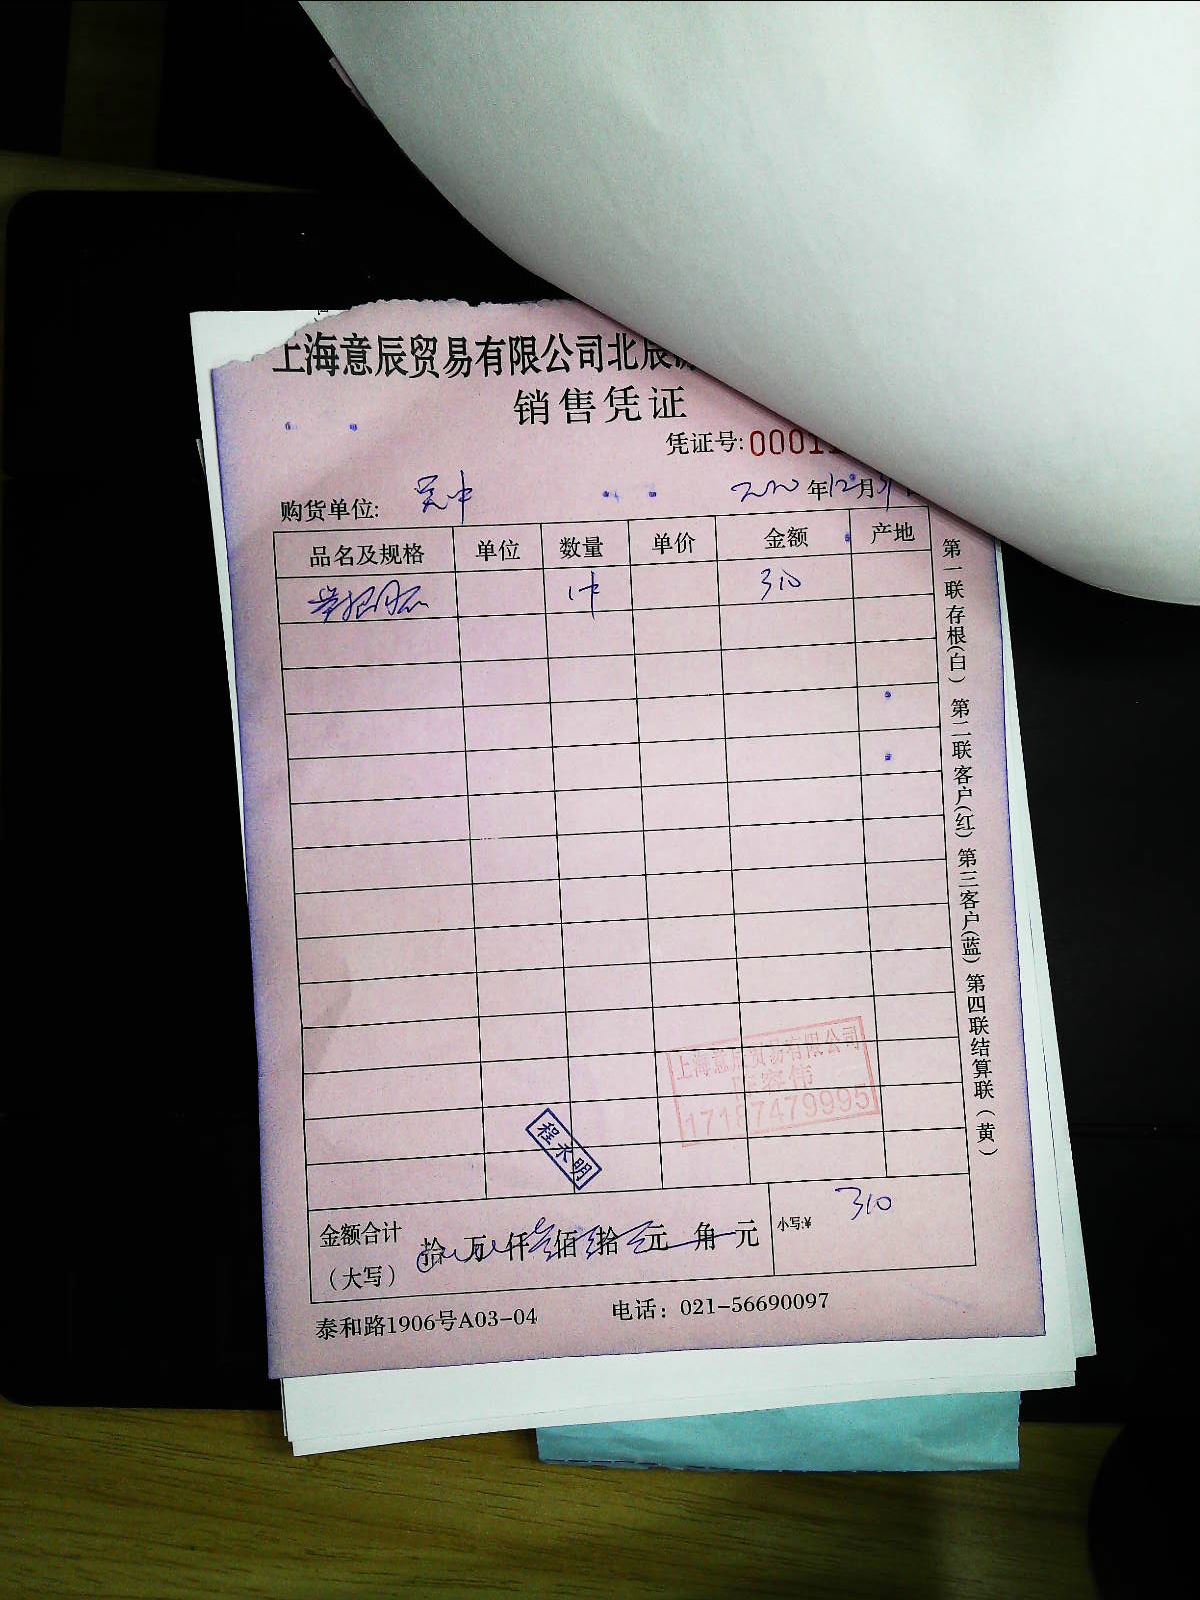 上海意辰贸易有限公司北辰
销售凭证
凭证号:00011
购货单位: 吴中 2020年12月31
品名及规格 单位 数量 单价 金额 产地
1件 310
第一联存根(白) 第二联客户(红) 第三客户(蓝) 第四联结算联(黄)
上海意辰贸易有限公司
17187479995
程永明
金额合计 拾 万 仟 叁佰 拾 元 角 元 小写:¥ 310
(大写)
泰和路1906号A03-04 电话: 021-56690097